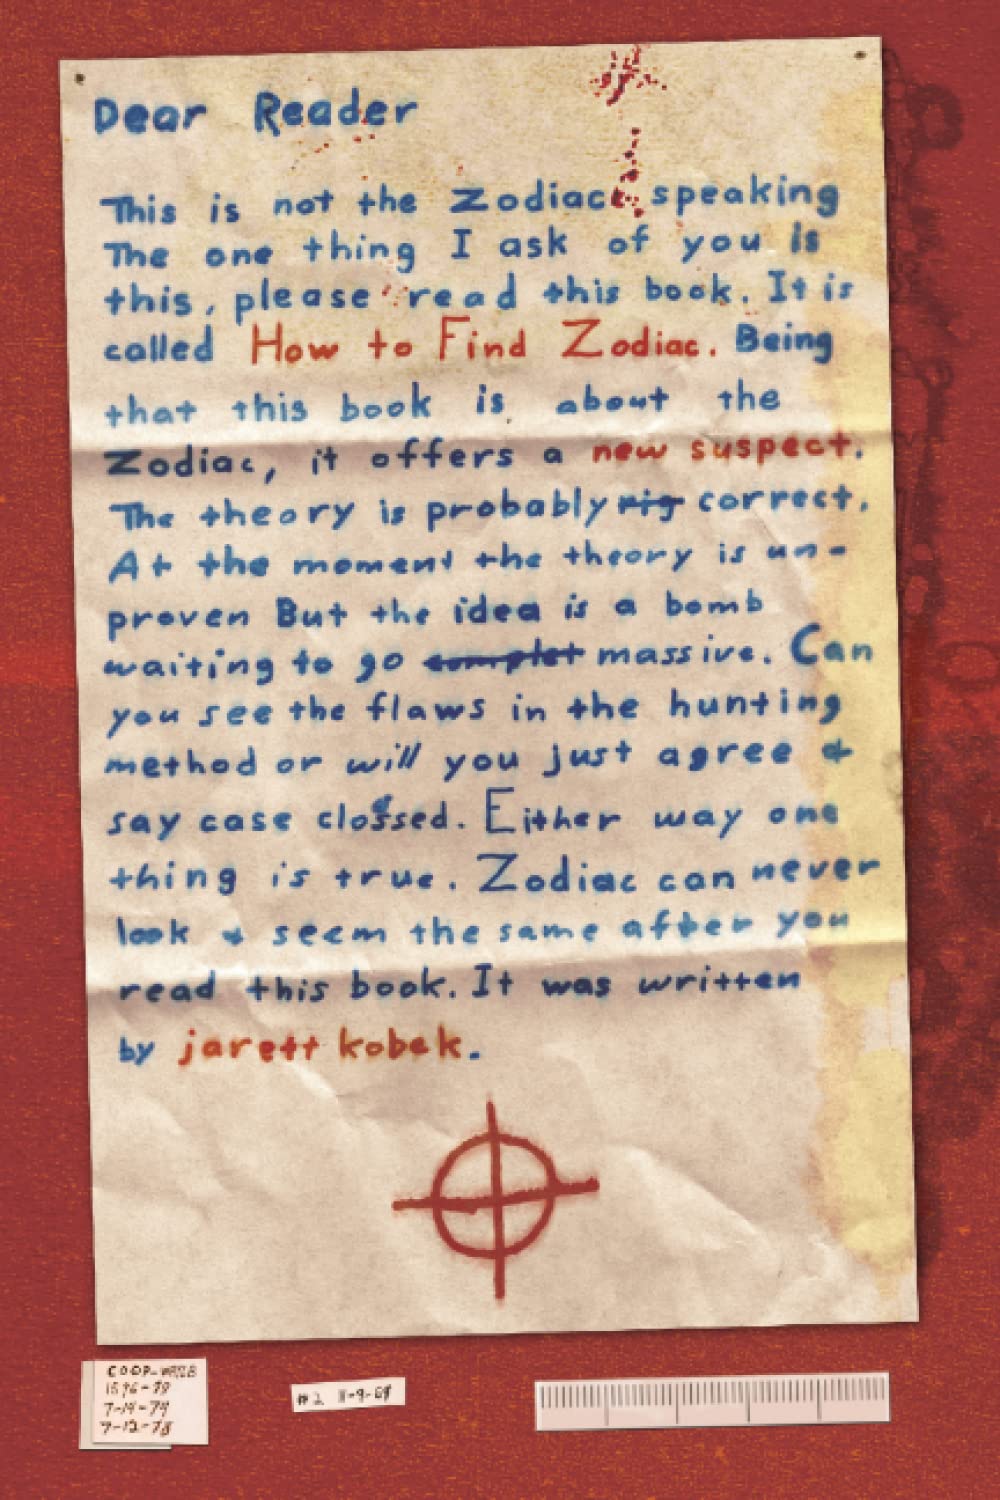 Dear Reader
This is not the Zodiac speaking
The one thing I ask of you is
this, please read this book. It is
called How to Find Zodiac. Being
that this book is about the
Zodiac, it offers a new suspect.
The theory is probably rig correct.
At the moment the theory is un-
proven But the idea is a bomb
waiting to go complet massive. Can
you see the flaws in the hunting
method or will you just agree &
say case clossed. Either way one
thing is true. Zodiac can never
look & seem the same after you
read this book. It was written
by jarett kobek.
COOP-
7-14-79
7-12-78
#2